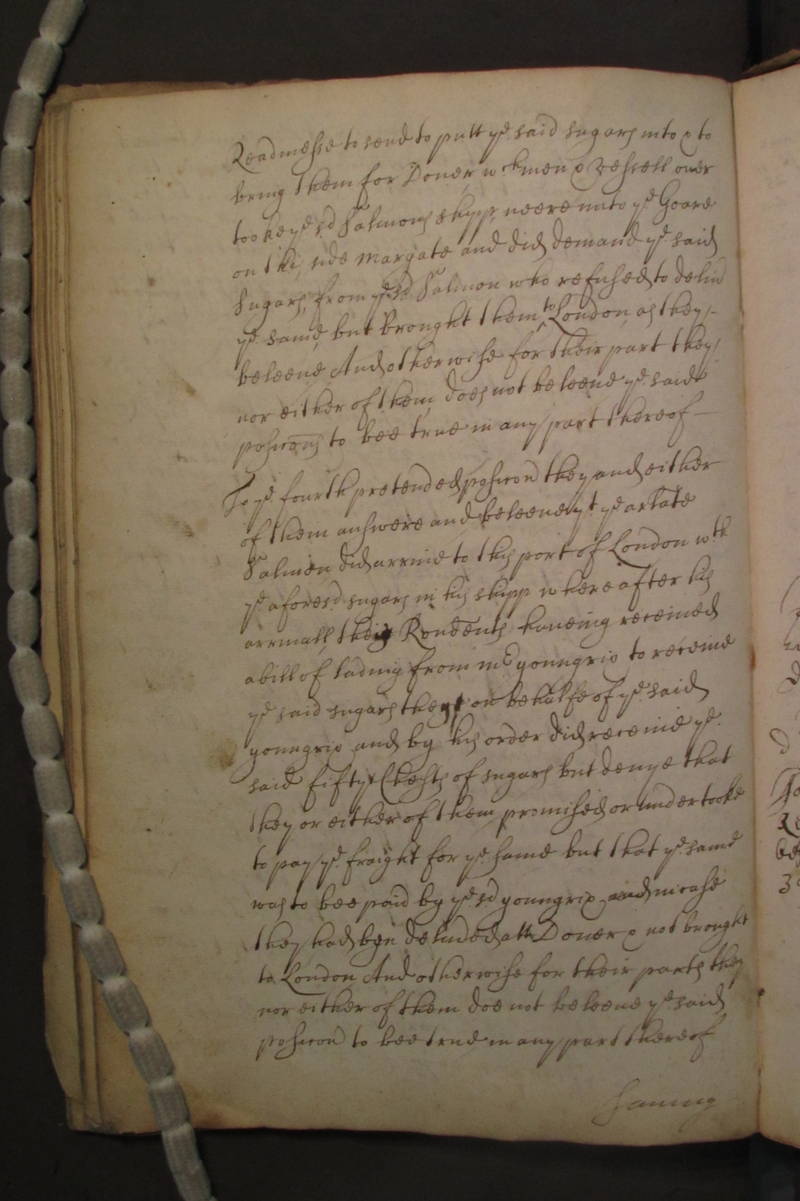 Readinesse to send to putt ye said sugars into & to
bring them for Dover wch men & vessell over
tooke ye sd Salmons shipp neere unto ye Goare
on this side Margate and did demand ye said
sugars from ye sd Salmon who refused to deliver
ye same but brought them to London as they
beleeve And otherwise for their part they
nor either of them does not beleeve ye said
posicons to bee true in any part thereof
To ye fourth pretended posicon they and either
of them answere and beleeve yt ye arlate
Salmon did arrive to this port of London wth
ye aforesd sugars in his shipp where after his
arrivall theis Rondents haveing received
a bill of lading from mr youngrio to receive
ye said sugars on behalfe of ye said
youngrio and by his order did receive ye
said fifty Chests of sugars but denye that
they or either of them promised or undertooke
to pay ye fraight for ye same but that ye same
was to bee paid by ye sd youngrio and in case
they had been delivered att Dover & not brought
to London And otherwise for their parts they
nor either of them doe not beleeve ye said
posicon to bee true in any part thereof
having